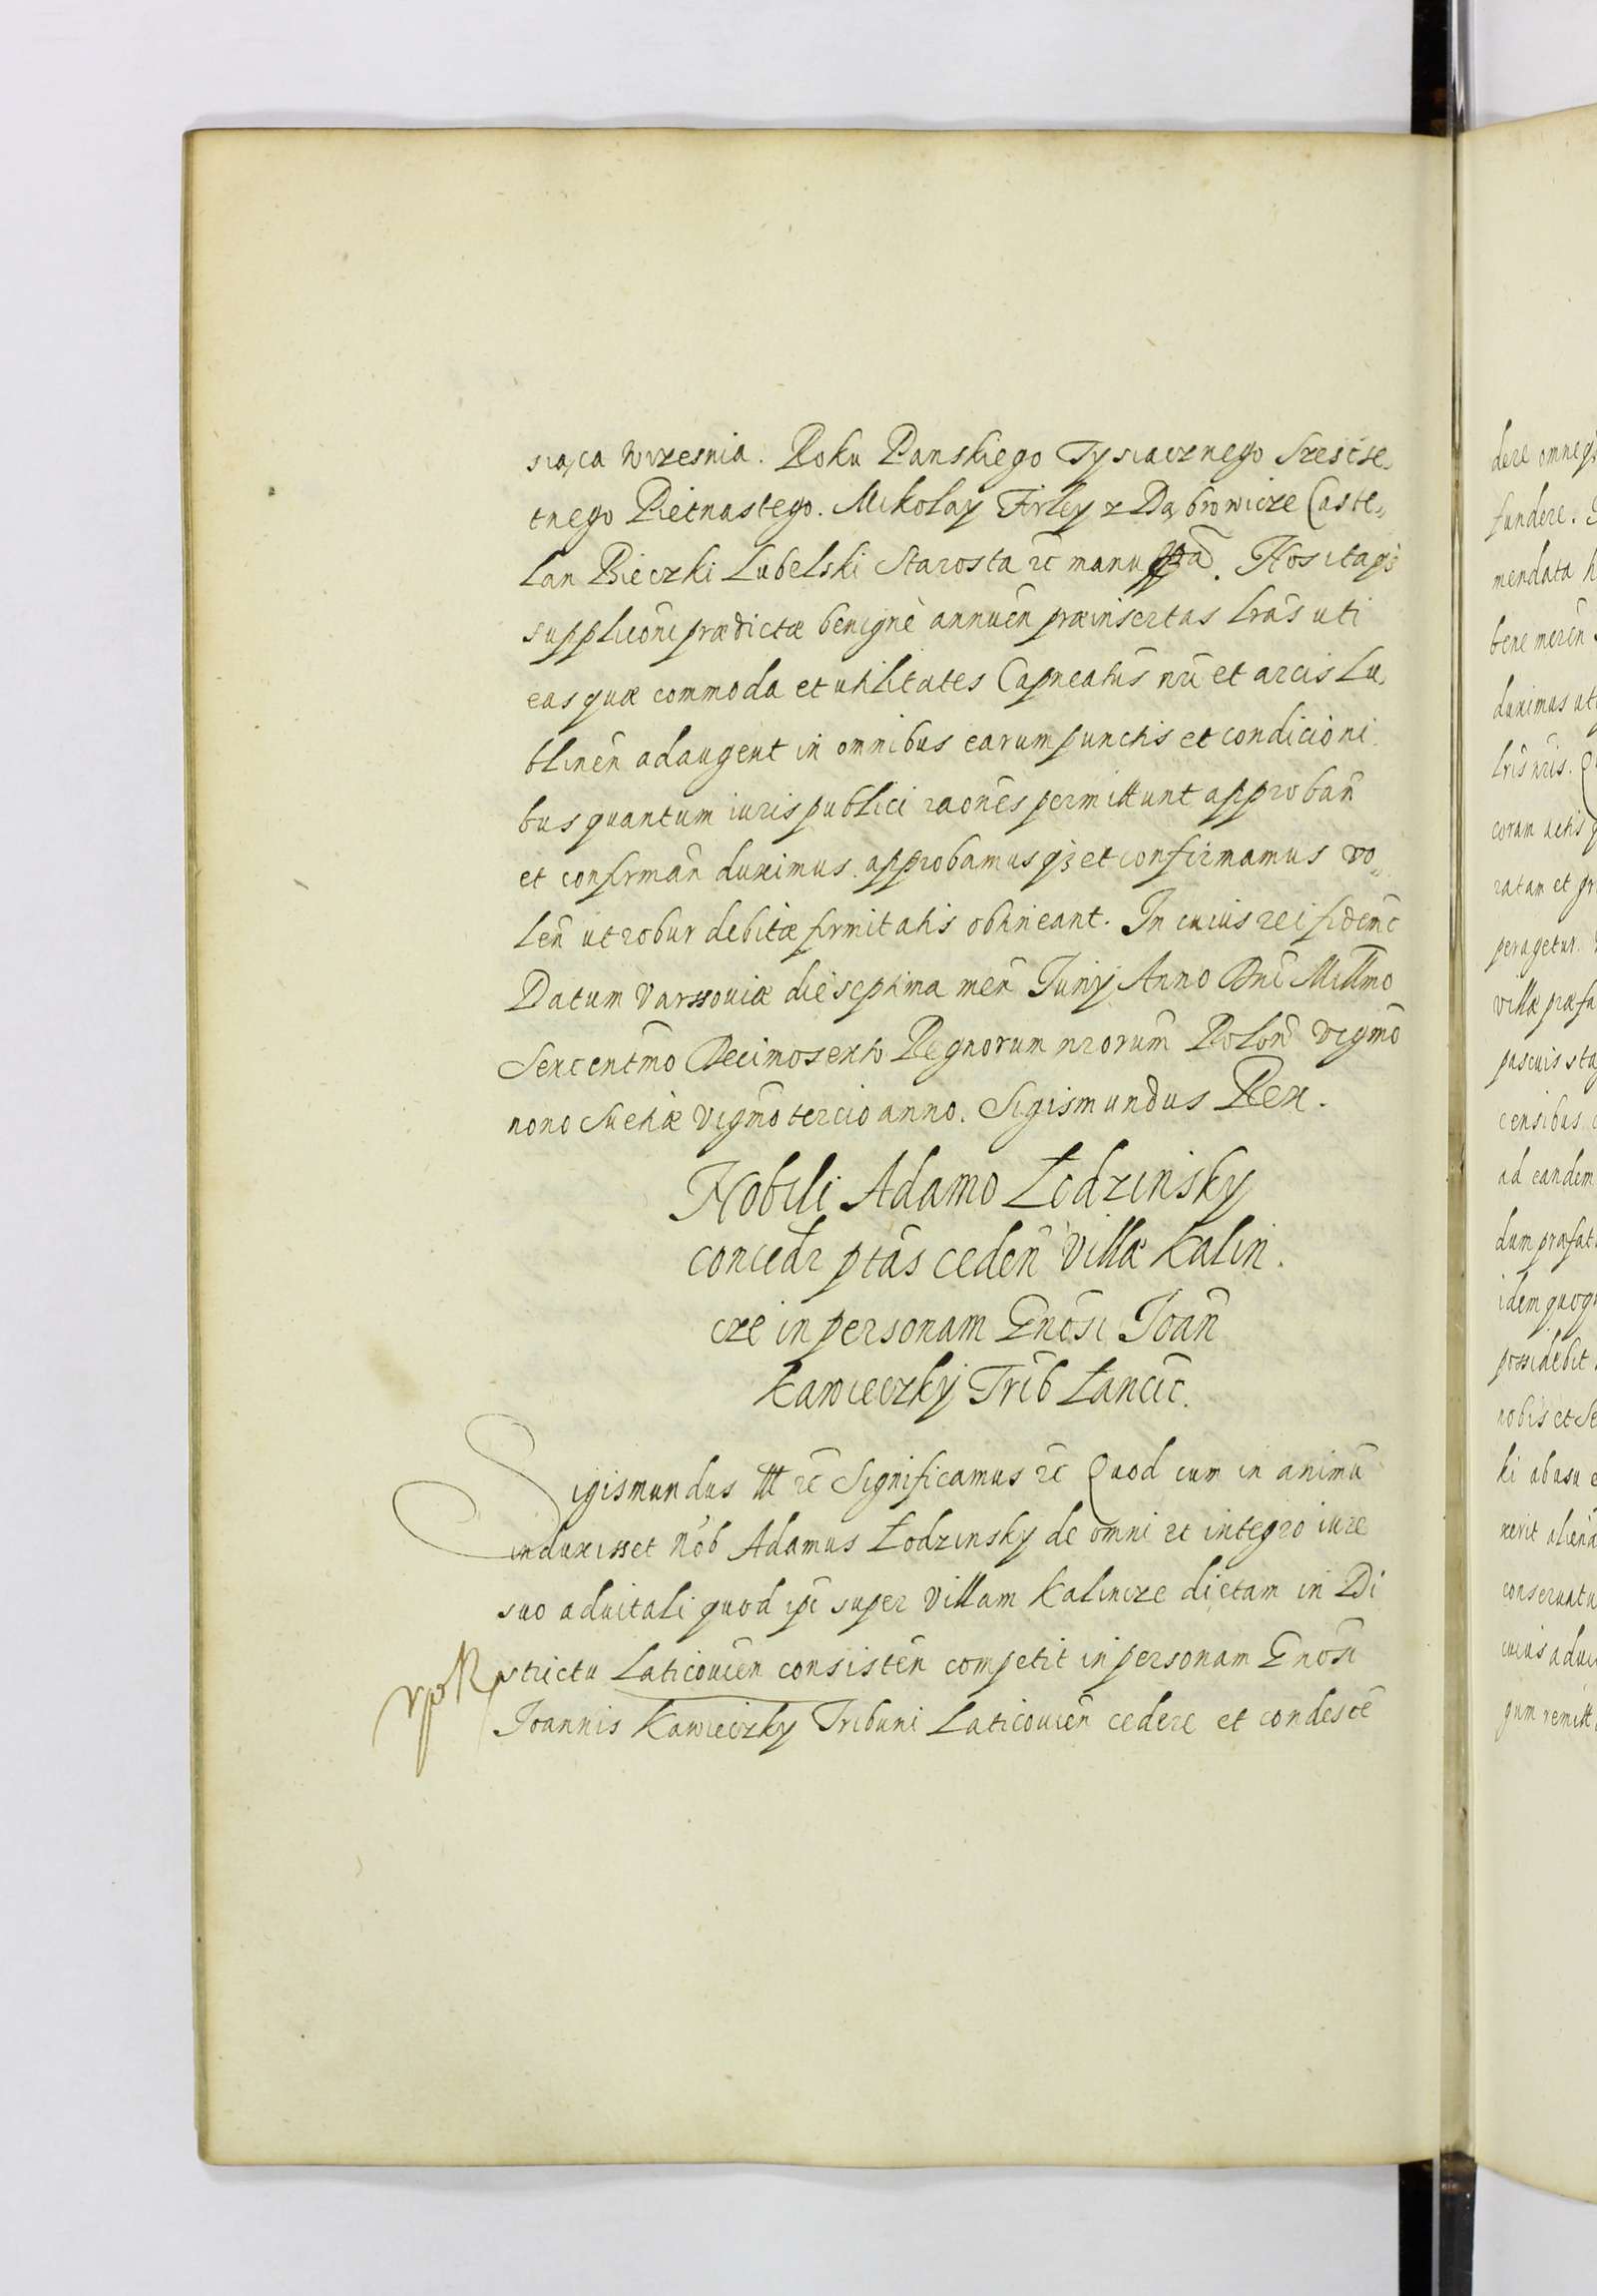 siąca Wrzesnia. Roku Panskiego Tysiacznego Szescse,
tnego Pietnastego. Mikolay Firley z Dąbrowicze Caste„
lan Bieczki Lubelski Starosta rc̃ manu ppã. Nos itaqȝ
supplicõni prædictæ benignè annuẽn præinsertas lrãs uti
eas quæ commoda et utilitates Capneatũs nr̃i et arcis Lu,
blinẽn adaugent in omnibus earum punctis et condicioni
bus quantum iuris publici raõnes permittunt approbañ
et confirmañ duximus. approbamusqȝ et confirmamus vo„
leñ ut robur debitæ firmitatis obtineant. In cuius rei fidem rc̃
Datum Varssoviæ die septima meñ Junij Anno Dni Millmo
Sexcentmõ Decimosexto Regnorum nrorum Poloñ vigmõ
nono Suetiæ vigmõ tercio anno. Sigismundus Rex.
Nobili Adamo Łodzinsky
concedr ptãs cedeñ villæ Kalin.
cze in personam Gnõsi Joañ
Kawieczky Trib Łancic.
Sigismundus III rc̃ Significamus rc̃ Quod cum in animũ
induxisset Nob Adamus Łodzinsky de omni et integro iure
suo aduitali quod ipi super Villam Kalincze dictam in Di
strictu Laticouieñ consisteñ competit in personam Gnõsi
Joannis Kawieczky Tribuni Laticouieñ cedere et condesce
dere omneqȝ
fundere.
mendata
bene mereñ
duximus uti
lris nris.
coram actis
ratam et
peragetur.
villæ præfa
pascuis sta
censibus
ad eandem
dum præfat
idem quoqu
possidebit
nobis et Se
ki ab usu
rerit aliena
conseruatu
cuius adui
gum remitt